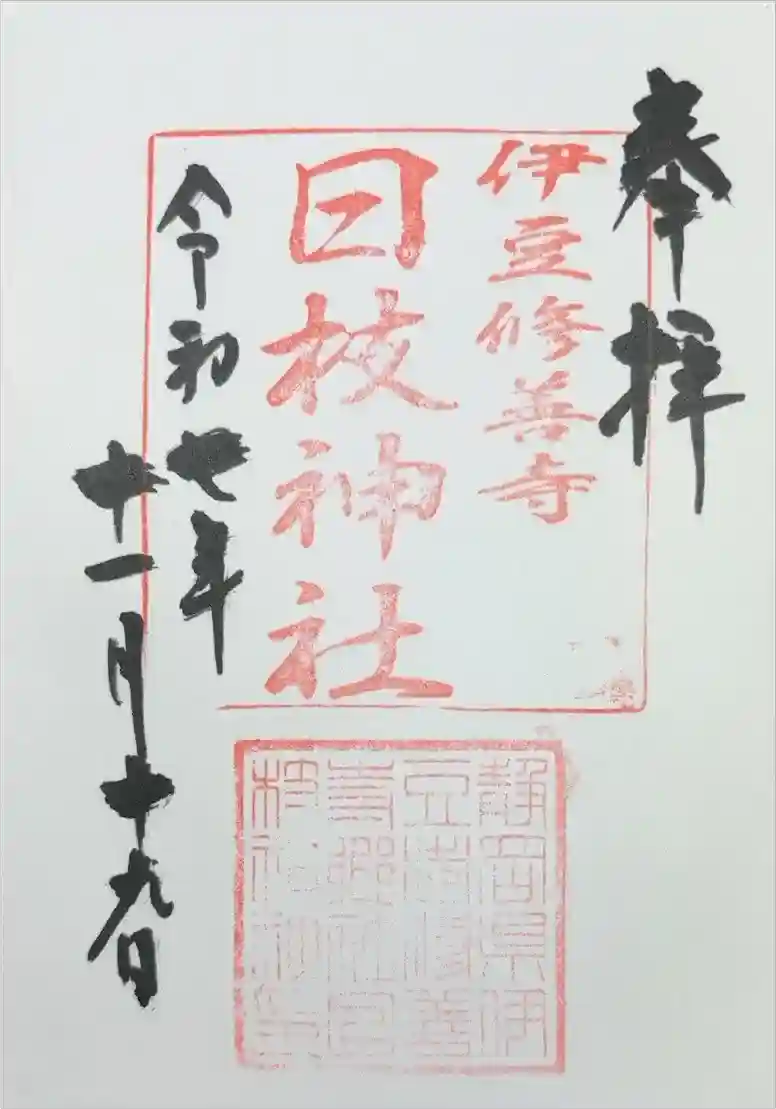 奉拝
伊豆修善寺
日枝神社
令和七年
十一月十九日
静岡県伊
豆市修善